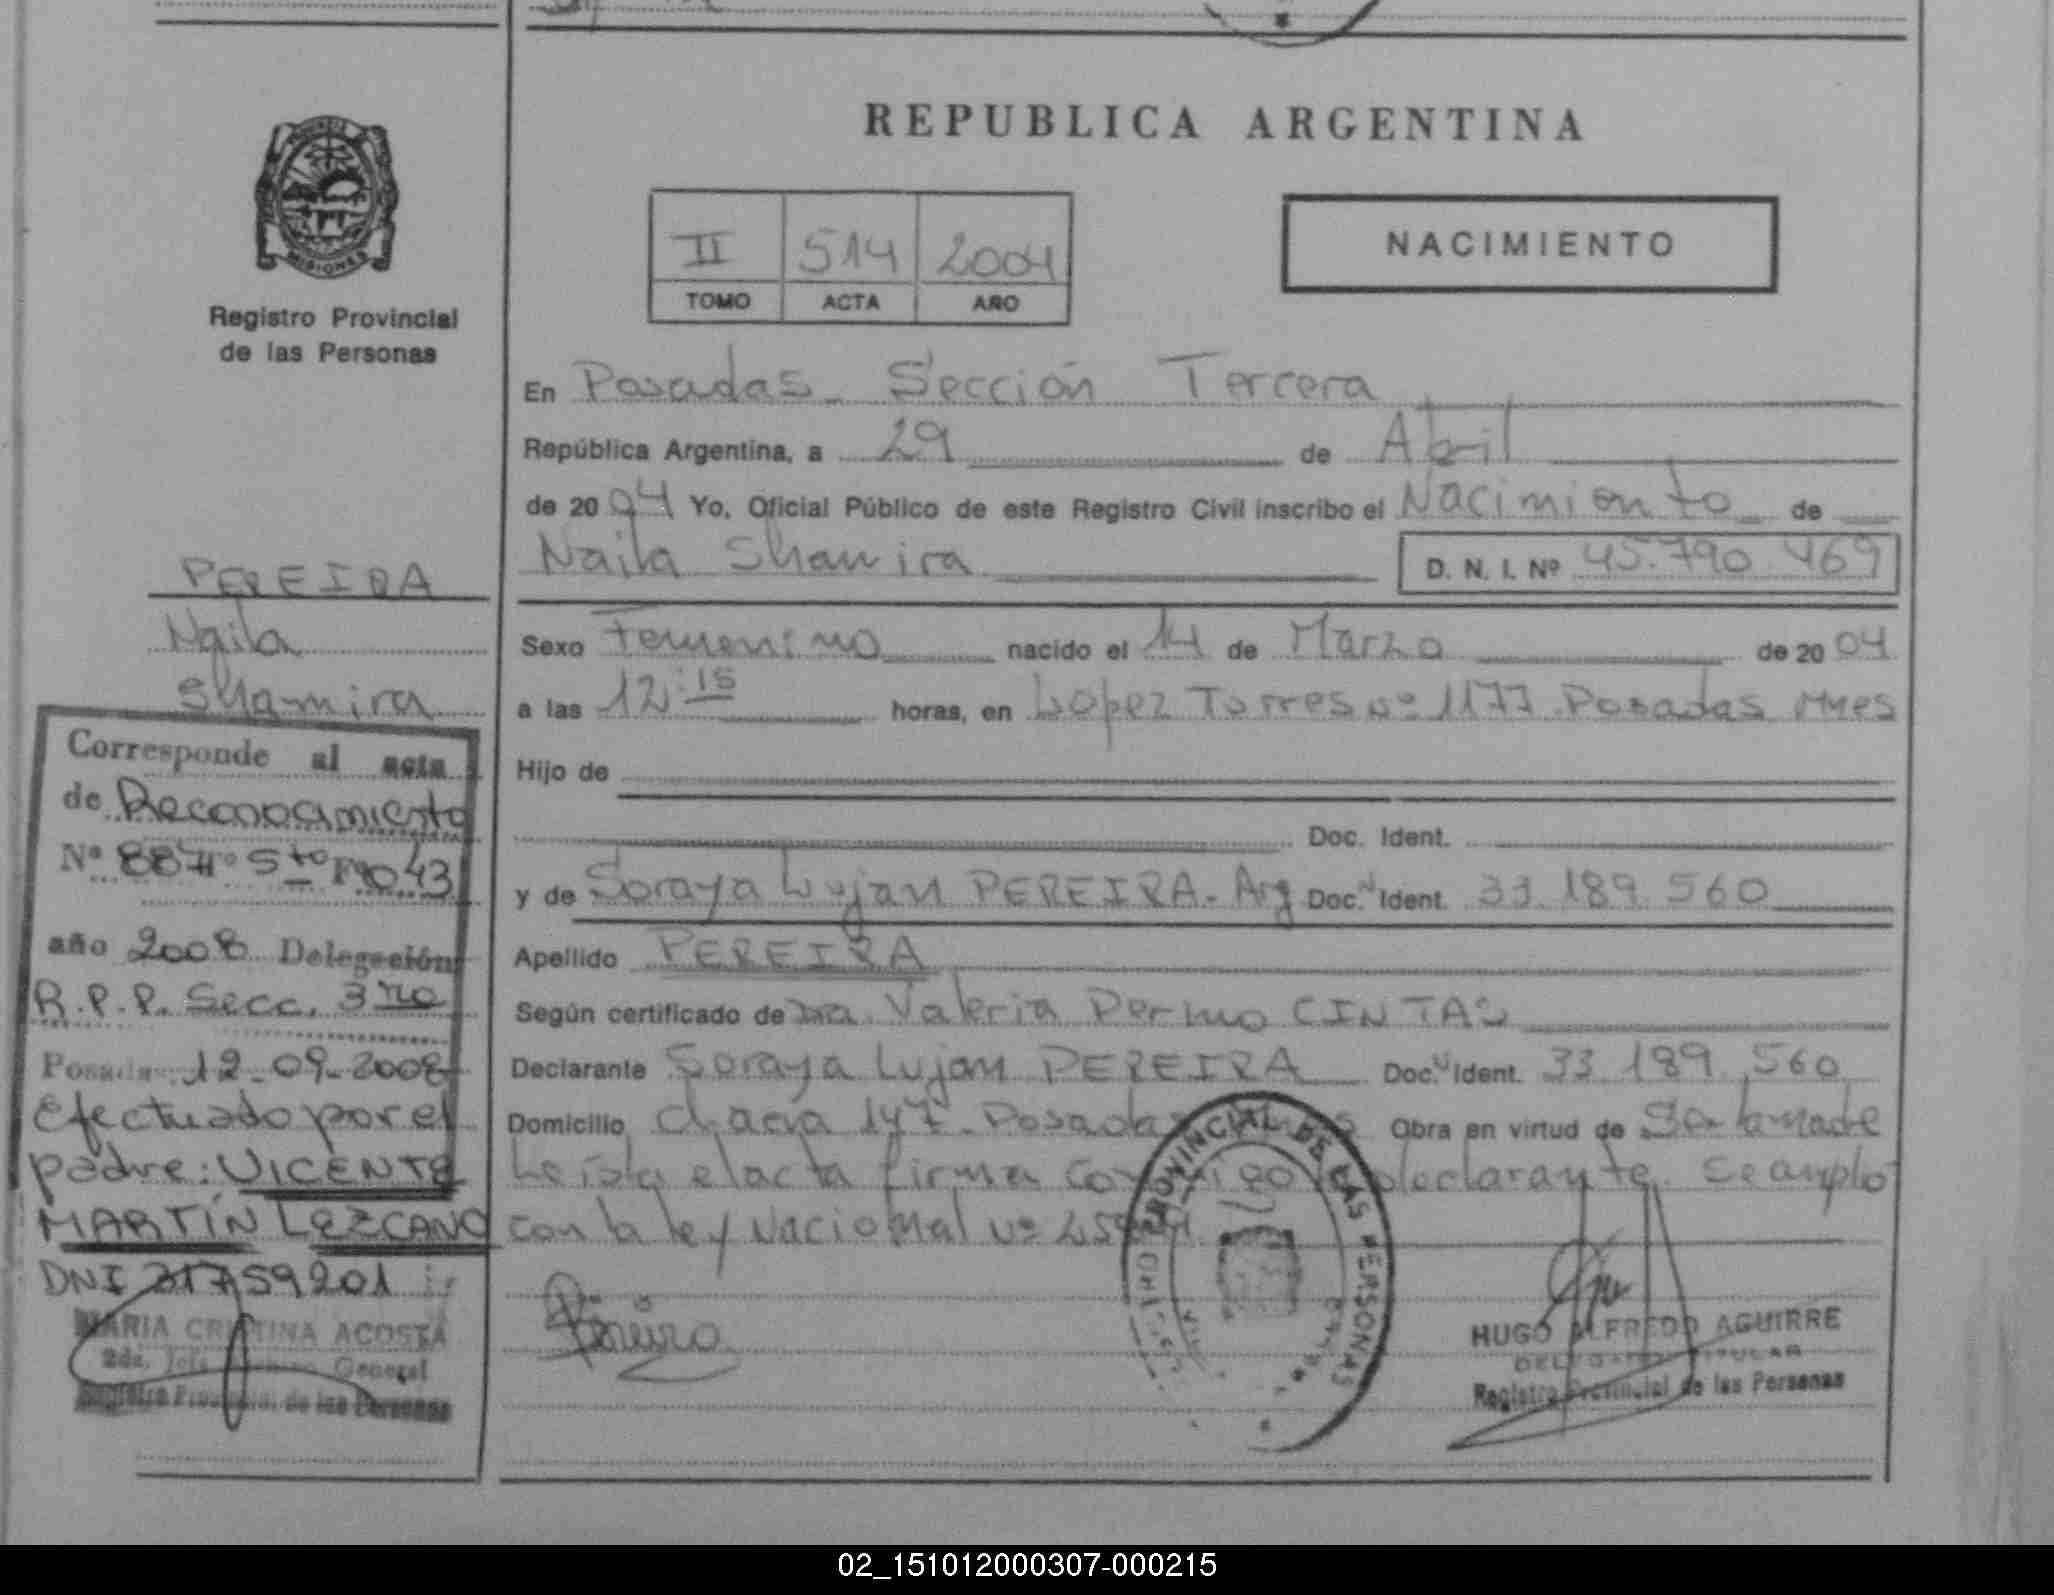 REPUBLICA ARGENTINA
MISIONES
Registro Provincial
de las Personas
II 514 2004
TOMO ACTA AÑO
NACIMIENTO
En Posadas - Sección Tercera
República Argentina, a 29 de Abril
de 2004 Yo, Oficial Público de este Registro Civil inscribo el Nacimiento de
Naila Shamira D. N. I. Nº 45.790.469
Sexo Femenino nacido el 14 de Marzo de 2004
a las 12:15 horas, en Lopez Torres nº 1177 Posadas Mnes
Hijo de
Doc. Ident.
y de Soraya Lujan PEREIRA - Arg Doc. Ident. 33.189.560
Apellido PEREIRA
Según certificado de Dra. Valeria CINTAS
Declarante Soraya Lujan PEREIRA Doc. Ident. 33.189.560
Domicilio Chacra 147 - Posadas Obra en virtud de Ser la madre
Leída el acta firma conmigo declarante. Se amplió
con la ley Nacional nº
PEREIRA
Naila
Shamira
Corresponde al acta
de Reconocimiento
Nº 887 Tº 5to Fº 043
año 2008 Delegación
R.P.P. Secc. 3ra
Posadas, 12-09-2008
Efectuado por el
padre: VICENTE
MARTÍN LEZCANO
DNI 31759201
MARIA CRISTINA ACOSTA
2da. General
Registro Provincial de las Personas
Pereira
PROVINCIAL DE LAS PERSONAS
HUGO ALFREDO AGUIRRE
DELEGADO TITULAR
Registro Provincial de las Personas
02_151012000307-000215